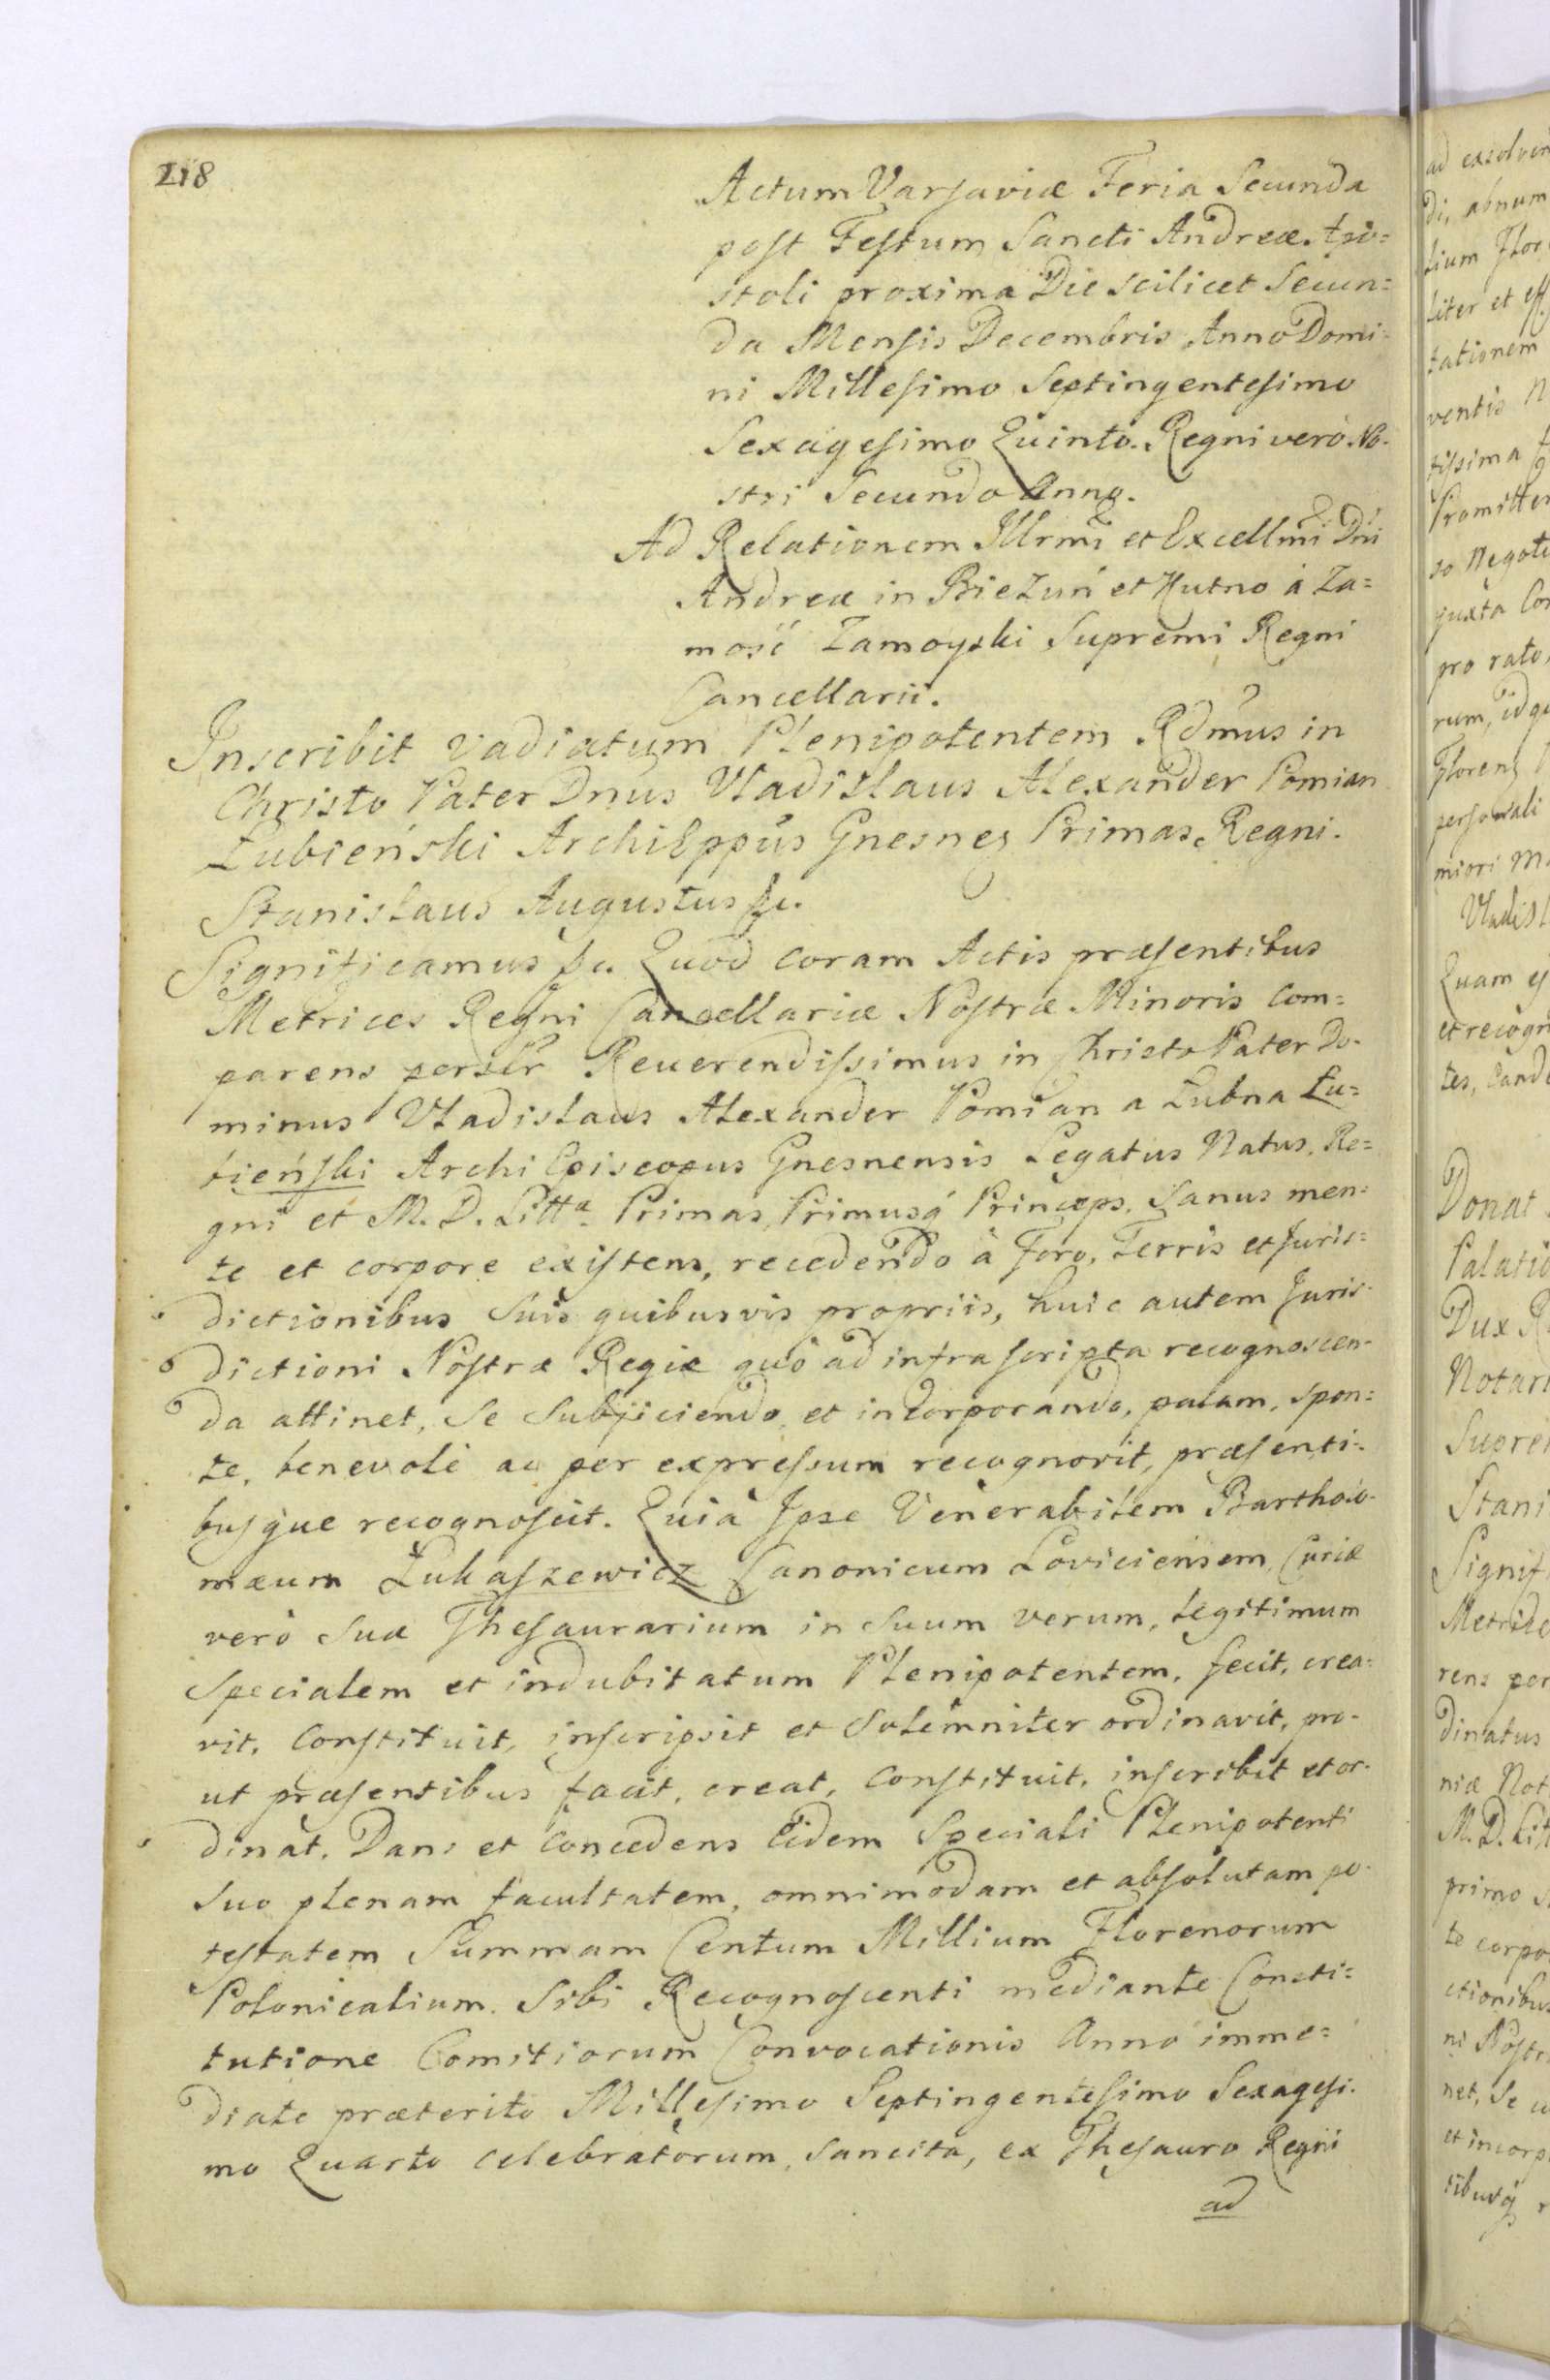 218
Actum Varsaviæ Feria Secunda
post Festum Sancti Andreæ Apo=
stoli proxima Die scilicet Secun=
da Mensis Decembris Anno Domi=
ni Millesimo Septingentesimo
Sexagesimo Quinto. Regni verò No-
stri Secundo Anno.
Ad Relationem Illrmi et Excellmi Dni
Andreæ in Bieżuń et Kutno à Za=
mość Zamoyski Supremi Regni
Cancellarii.
Inscribit vadiatum Plenipotentem Rdmus in
Christo Pater Dnus Vladislaus Alexander Pomian
Łubieński ArchiEppus Gnesnes Primas Regni.
Stanislaus Augustus &c.
Significamus &c. Quod coram Actis præsentibus
Metrices Regni Cancellariæ Nostræ Minoris com=
parens perslr Reuerendissimus in Christo Pater Do-
minus Vladislaus Alexander Pomian a Łubna Łu=
bieński Archi Episcopus Gnesnensis Legatus Natus, Re=
gni et M. D. Litta. Primas, Primusq́ Princeps, Sanus men=
te et corpore existens, recedendo à Foro, Terris et Juris=
dictionibus Suis quibusvis propriis, huic autem Juris-
dictioni Nostræ Regiæ quò ad infrascripta recognoscen-
da attinet, Se Subjiciendo et incorporando, palam, spon=
te, benevolè ac per expressum recognovit, præsenti=
busque recognoscit. Quia Ipse Venerabilem Bartholo-
mæum Łukaszewicz Canonicum Loviciensem, Curiæ
verò Suæ Thesaurarium in Suum verum, legitimum
Specialem et indubitatum Plenipotentem, fecit, crea=
vit, Constituit, inscripsit et Solemniter ordinavit, pro-
ut præsentibus facit, creat, Constituit, inscribit et or-
dinat. Dans et Concedens Eidem Speciali Plenipotenti
Suo plenam facultatem, omnimodam et absolutam po-
testatem Summam Centum Millium Florenorum
Polonicalium. Sibi Recognoscenti mediante Consti=
tutione Comitiorum Convocationis Anno imme=
diate præterito Millesimo Septingentesimo Sexagesi-
mo Quarto celebratorum, sancita, ex Thesauro Regni
ad
ad exsolven
di, abnum
lium Flor
liter et eff
tationem
ventis N
tissima
Promitten
so Negoti
juxta Con
pro rato,
rum, idq
Floren
personali
miori M
Vladisl
Quam ej
et recogn
tes, eand
Donat
Palatio
Dux R
Notari
Supre
Stani
Signif
Metrice
rens per
dinatus
niæ Not
M. D. Lit
primo S
te corpo
ctionibus
ni Nostr
net, Se
et incorp
tibusq́ r